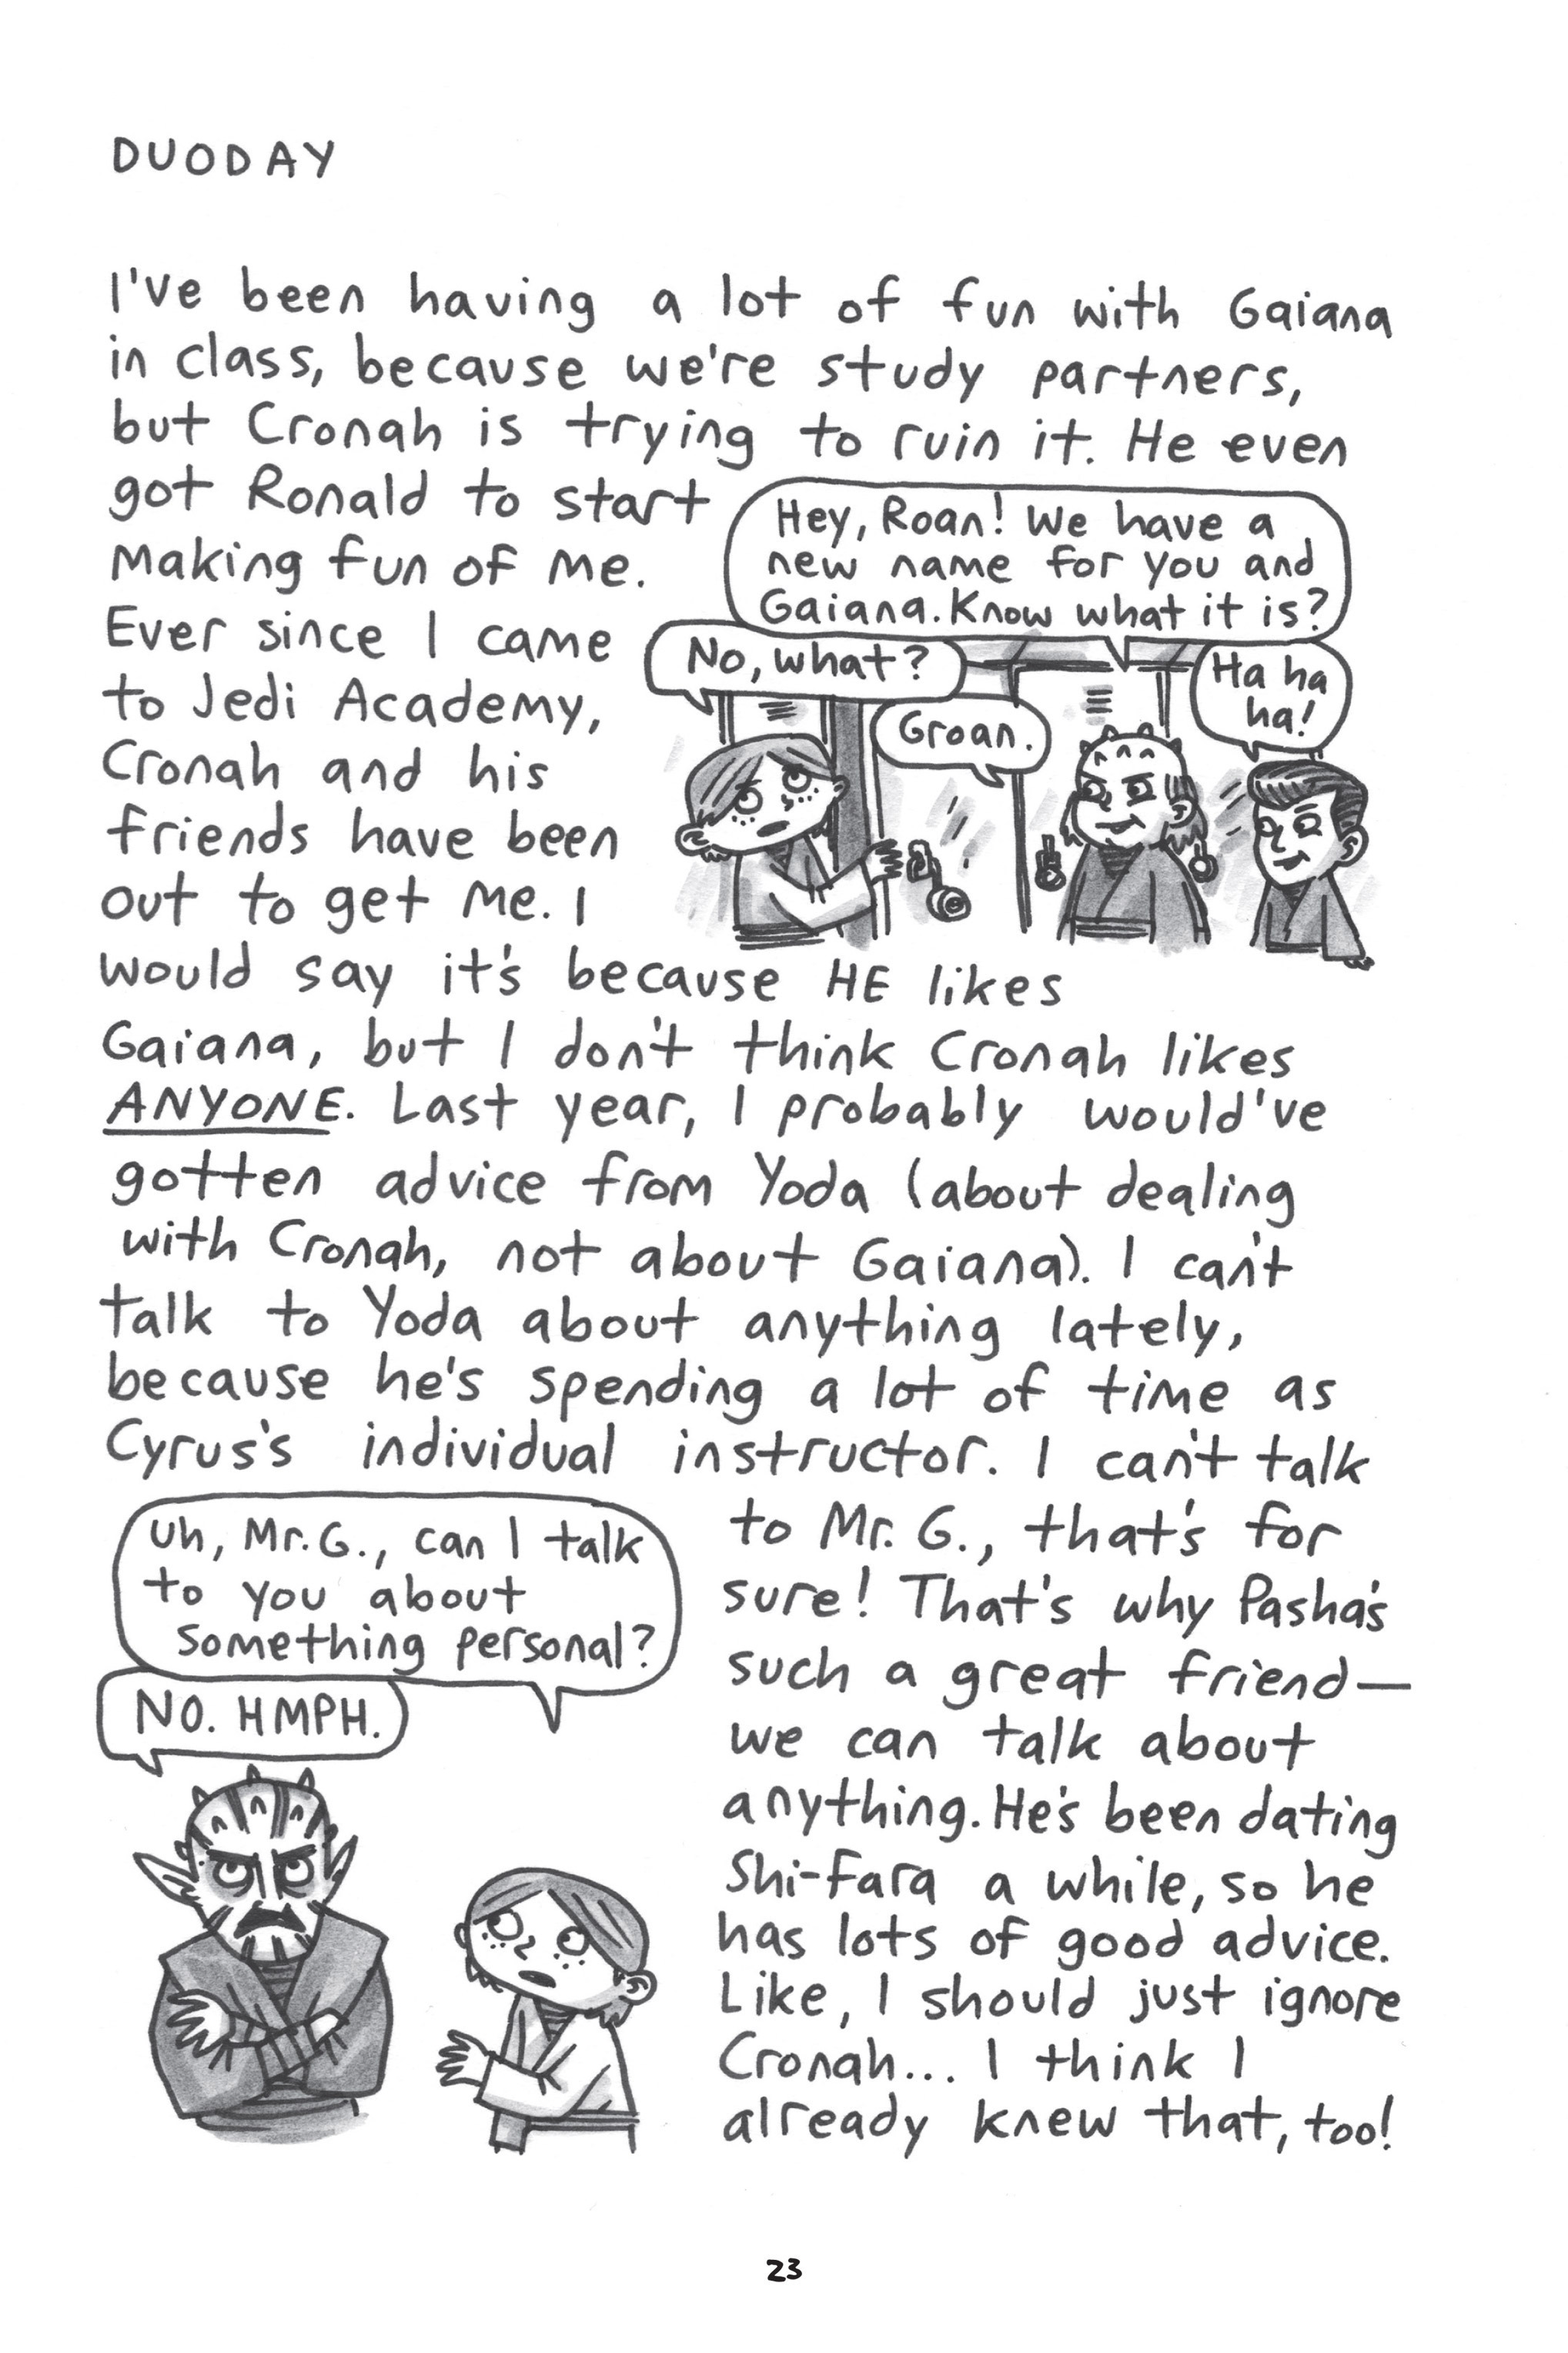 DUODAY
I've been having a lot of fun with Gaiana
in class, because we're study partners,
but Cronah is trying to ruin it. He even
got Ronald to start
making fun of me.
Ever since I came
to Jedi Academy,
Cronah and his
friends have been
out to get me. I
would say it's because HE likes
Gaiana, but I don't think Cronah likes
ANYONE. Last year, I probably would've
gotten advice from Yoda (about dealing
with Cronah, not about Gaiana). I can't
talk to Yoda about anything lately,
because he's spending a lot of time as
Cyrus's individual instructor. I can't talk
to Mr. G., that's for
sure! That's why Pasha's
such a great friend—
we can talk about
anything. He's been dating
Shi-Fara a while, so he
has lots of good advice.
Like, I should just ignore
Cronah... I think I
already knew that, too!
Hey, Roan! We have a
new name for you and
Gaiana. Know what it is?
No, what?
Groan.
Ha ha
ha!
Uh, Mr. G., can I talk
to you about
something personal?
NO. HMPH.
23